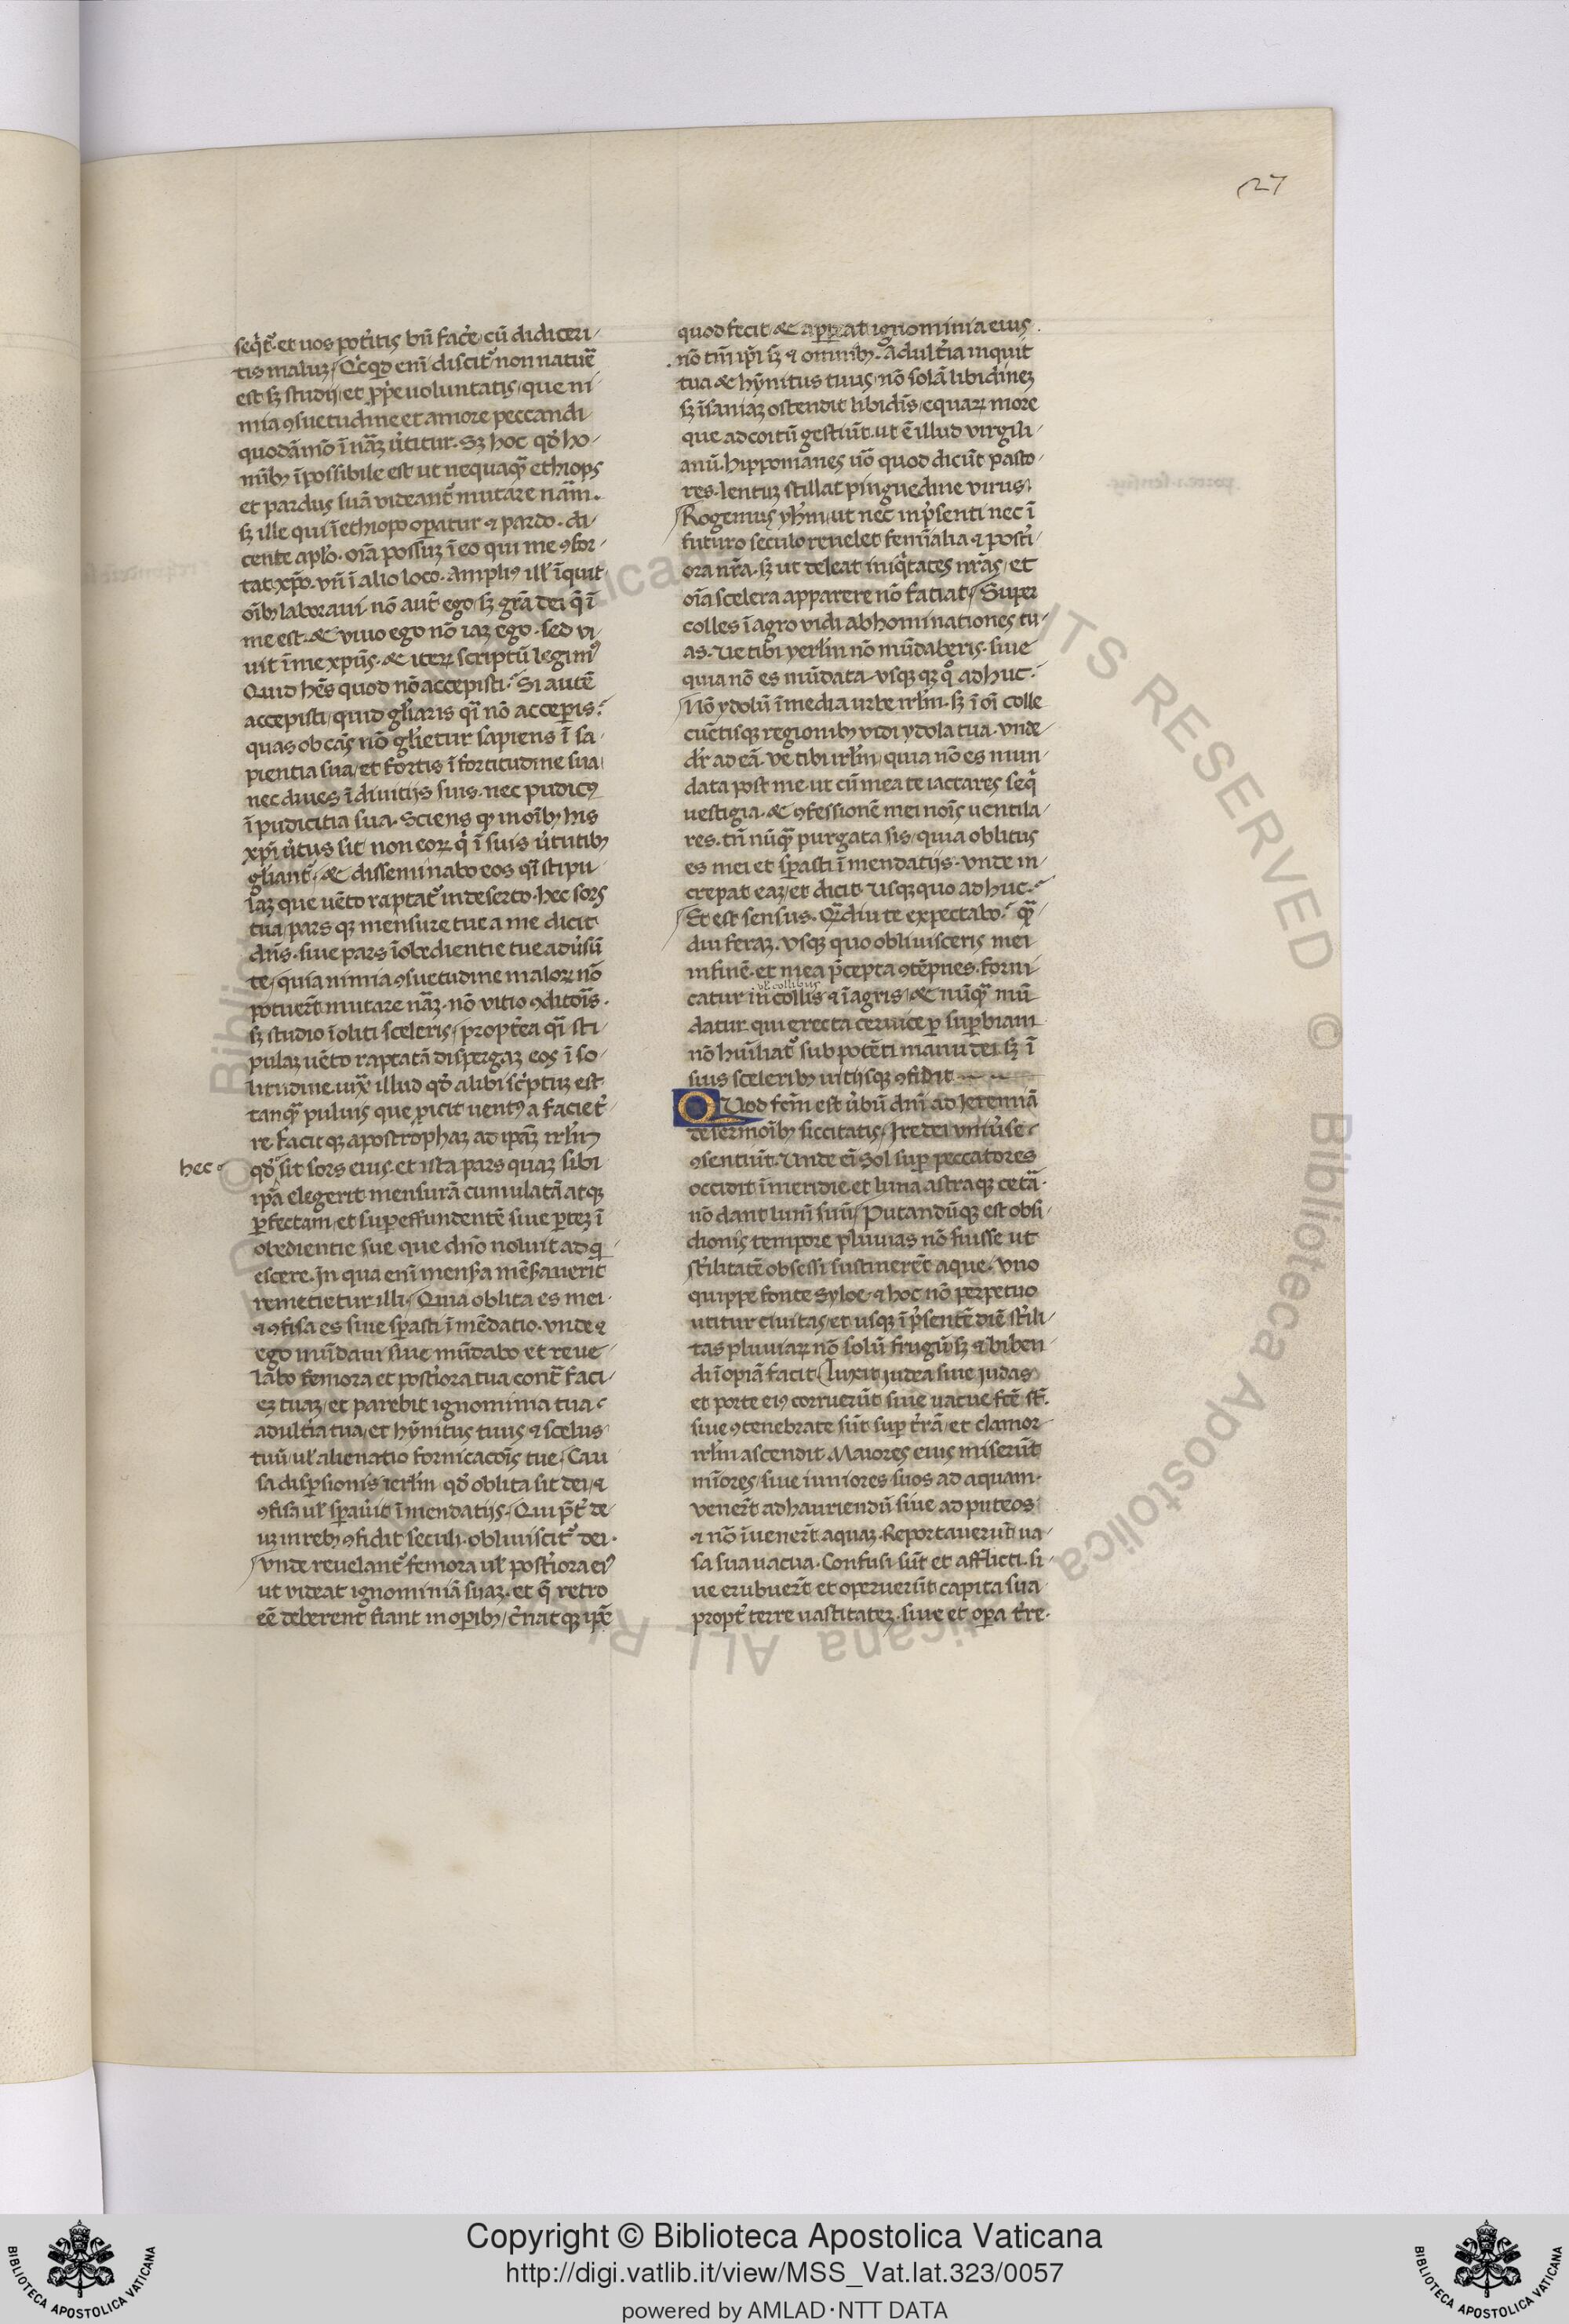 27
seq̄t᷑. et uos pot̄itis bn̄ fac̄e, cū didiceri/
tis maluʒ/ Qͥcqͥd eni discit᷑ non natuē
est sʒ studij, et ꝓpͥe voluntatis, que ni/
mia ꝯsuetudine et amore peccandi
quodāmō ī nāʒ ūtitur. Sʒ hoc qd̄ ho/
mībꝫ īpossibile est ut nequaqͣ ethiops
et pardus suā videant᷑ mutare nāꝫ.
sʒ ille qui ī ethiopo oꝑatur ⁊ pardo. di/
cente apl̄o. oīa possuʒ ī eo qui me ꝯfor/
tat xp̄o. vn̄ ī alio loco. Ampliꝰ ill̄ īquit
oībꝫ laboraui. nō aut̄ ego, sʒ grā dei q̄ ī
me est. & viuo ego nō iaʒ ego. sed vi/
uit ī me xp̄us. & iteꝝ scriptū legimꝰ
Quid hēs quod nō accepisti? Si autē
accepisti, quid gl̄iaris qͣi nō acceꝑis?
quas ob cās nō gl̄ietur sapiens ī sa/
pientia sua, et fortis ī fortitudine sua,
nec diues ī diuitijs suis. nec pudicꝰ
ī pudicitia sua. Sciens qꝫ in oībꝫ his
xp̄i ūtus sit non eoꝝ qͥ ī suis ūtutibꝫ
gl̄iant᷑, & disseminabo eos qͣi stipu/
laʒ que uēto raptat᷑ in deserto. hec sors
tua, pars qꝫ mensure tue a me dicit
dn̄s. siue pars īobedientie tue adūsū
te, quia nimia ꝯsuetudine maloꝝ nō
potuer̄t mutare nāʒ. nō vitio ꝯditōis.
sʒ studio īoliti sceleris, propt̄ea qͣi sti/
pulaʒ uēto raptatā disꝑgaʒ eos ī so/
litudine iuxͣ illud qd̄ alibi scͥptuʒ est.
tanqͣ puluis que ꝓicit uentꝰ a facie t̄/
re. facit qꝫ apostrophaʒ ad ip̄aʒ irl̄m
hec
qd̄ sit sors eius. et ista pars quaʒ sibi
ip̄a elegerit mensurā cumulatā atqꝫ
ꝑfectam, et suꝑeffundentē siue ꝑteʒ ī
obedientie sue que dn̄o noluit adqͥ
escere. In qua eni mensͣa mēsͣauerit
remetietur illi. Quia oblita es mei.
⁊ ꝯfisa es siue sꝑasti ī mēdatio. vnde ⁊
ego nudaui siue nūdabo et reue
lābo femora et post̄iora tua contͣ faci/
eʒ tuaʒ, et parebit ignominia tua.
adult̄ia tua, et hȳnitus tuus ⁊ scelus
tuū, ul̄ alienatio fornicacōis tue, Cau
sa disꝑsionis ierl̄m qd̄ oblita sit dei, ⁊
ꝯfisa ul̄ sꝑaūit ī mendatijs. Qui p̄t de/
uʒ in rebꝫ ꝯfidit seculi. obliuiscit᷑ dei.
Vnde reuelant᷑ femora ul̄ post̄iora eiꝰ
ut videat ignominiā suaʒ. et q̄ retro
eē deberent fiant in oꝑibꝫ, c̄nat qꝫ ip̄e
quod fecit, & apparat ignominia eius.
nō tm̄ ip̄i sʒ ⁊ omnibꝫ. Adult̄ia inquit
tua & hȳnitus tuus, nō solā libidineʒ
sʒ īsaniaʒ ostendit libidis, equaꝝ more
que ad coitū gestiūt. ut ē illud virgili/
anū. hippomanes ūo quod dicūt pasto/
res. lentuʒ stillat pinguedine virus.
Rogemus yhm̄, ut nec in p̄senti nec ī
futuro seculo reuelet femīalia ⁊ post̄i/
ora nr̄a. sʒ ut deleat iniqͥtates nr̄as, et
oīa scelera apparere nō fatiat. Super
colles ī agro vidi abhominationes tu/
as. Ue tibi yerl̄m nō mūdaberis. siue
quia nō es mūdata. vsqꝫ qꝝ qͦ adhuc?
Nō ydolū ī media urbe irl̄m. sʒ ī oī colle
cūctisqꝫ regionibꝫ vidi ydola tua. vnde
dr̄ ad eā. ve tibi irl̄m, quia nō es mun
data post me. ut cū mea te iactares seqͥ
uestigia. & ꝯfessionē mei nois uentila/
res. tn̄ nūqͣ purgata sis, quia oblitus
es mei et sꝑasti ī mendatijs. vnde in/
crepat eaʒ, et dicit. Usqꝫ quo adhuc?
Et est sensus. Qͣdiu te expectabo? qͣ/
diu feraʒ. vsqꝫ quo obliuisceris mei
in finē. et mea p̄cepta ꝯtēpnes. forni
ul̄ collibus
catur in collis ⁊ ī agris, & nūqͣ mū
datur. qui erecta ceruice ꝑ suꝑbiam
nō hūiliat᷑ sub potēti manu dei. sʒ ī
suis sceleribꝫ uitijsqꝫ ꝯfidit
QUod fcm̄ est ūbū dn̄i ad Ieremiā
de sermoībꝫ siccitatis. Ire dei vniūse
ꝯsentiūt. Unde eī Sol suꝑ peccatores
occidit ī meridie. et luna astraqꝫ cetā.
nō dant lumī suū, Putandūqꝫ est obsi/
dionis tempore pluuias nō fuisse ut
st̄ilitatē obsessi sustinerēt aque. Vno
quippe fonte Syloe, ⁊ hoc nō perpetuo
utitur ciuitas, et usqꝫ ī p̄sentē diē st̄ili/
tas pluuiaꝝ nō solū frugū, sʒ ⁊ biben/
di īopiā facit. Luxit iudea siue iudas
et porte eiꝰ corruerūt, siue uacue fctē st̄.
siue ꝯtenebrate sūt suꝑ t̄rā, et clamor
irl̄m ascendit. Maiores eius miserūt
mīores, siue iuniores suos ad aquam.
vener̄t ad hauriendū siue ad puteos
⁊ nō īuener̄t aquaʒ. Reportauerūt ua/
sa sua uacua. Confusi sūt et afflicti. si/
ue erubuer̄t et operuerūt capita sua
propt̄ terre uastitateʒ. siue et oꝑa t̄re.
Copyright © Biblioteca Apostolica Vaticana
http://digi.vatlib.it/view/MSS_Vat.lat.323/0057
powered by AMLAD·NTT DATA
BIBLIOTECA APOSTOLICA VATICANA
BIBLIOTECA APOSTOLICA VATICANA